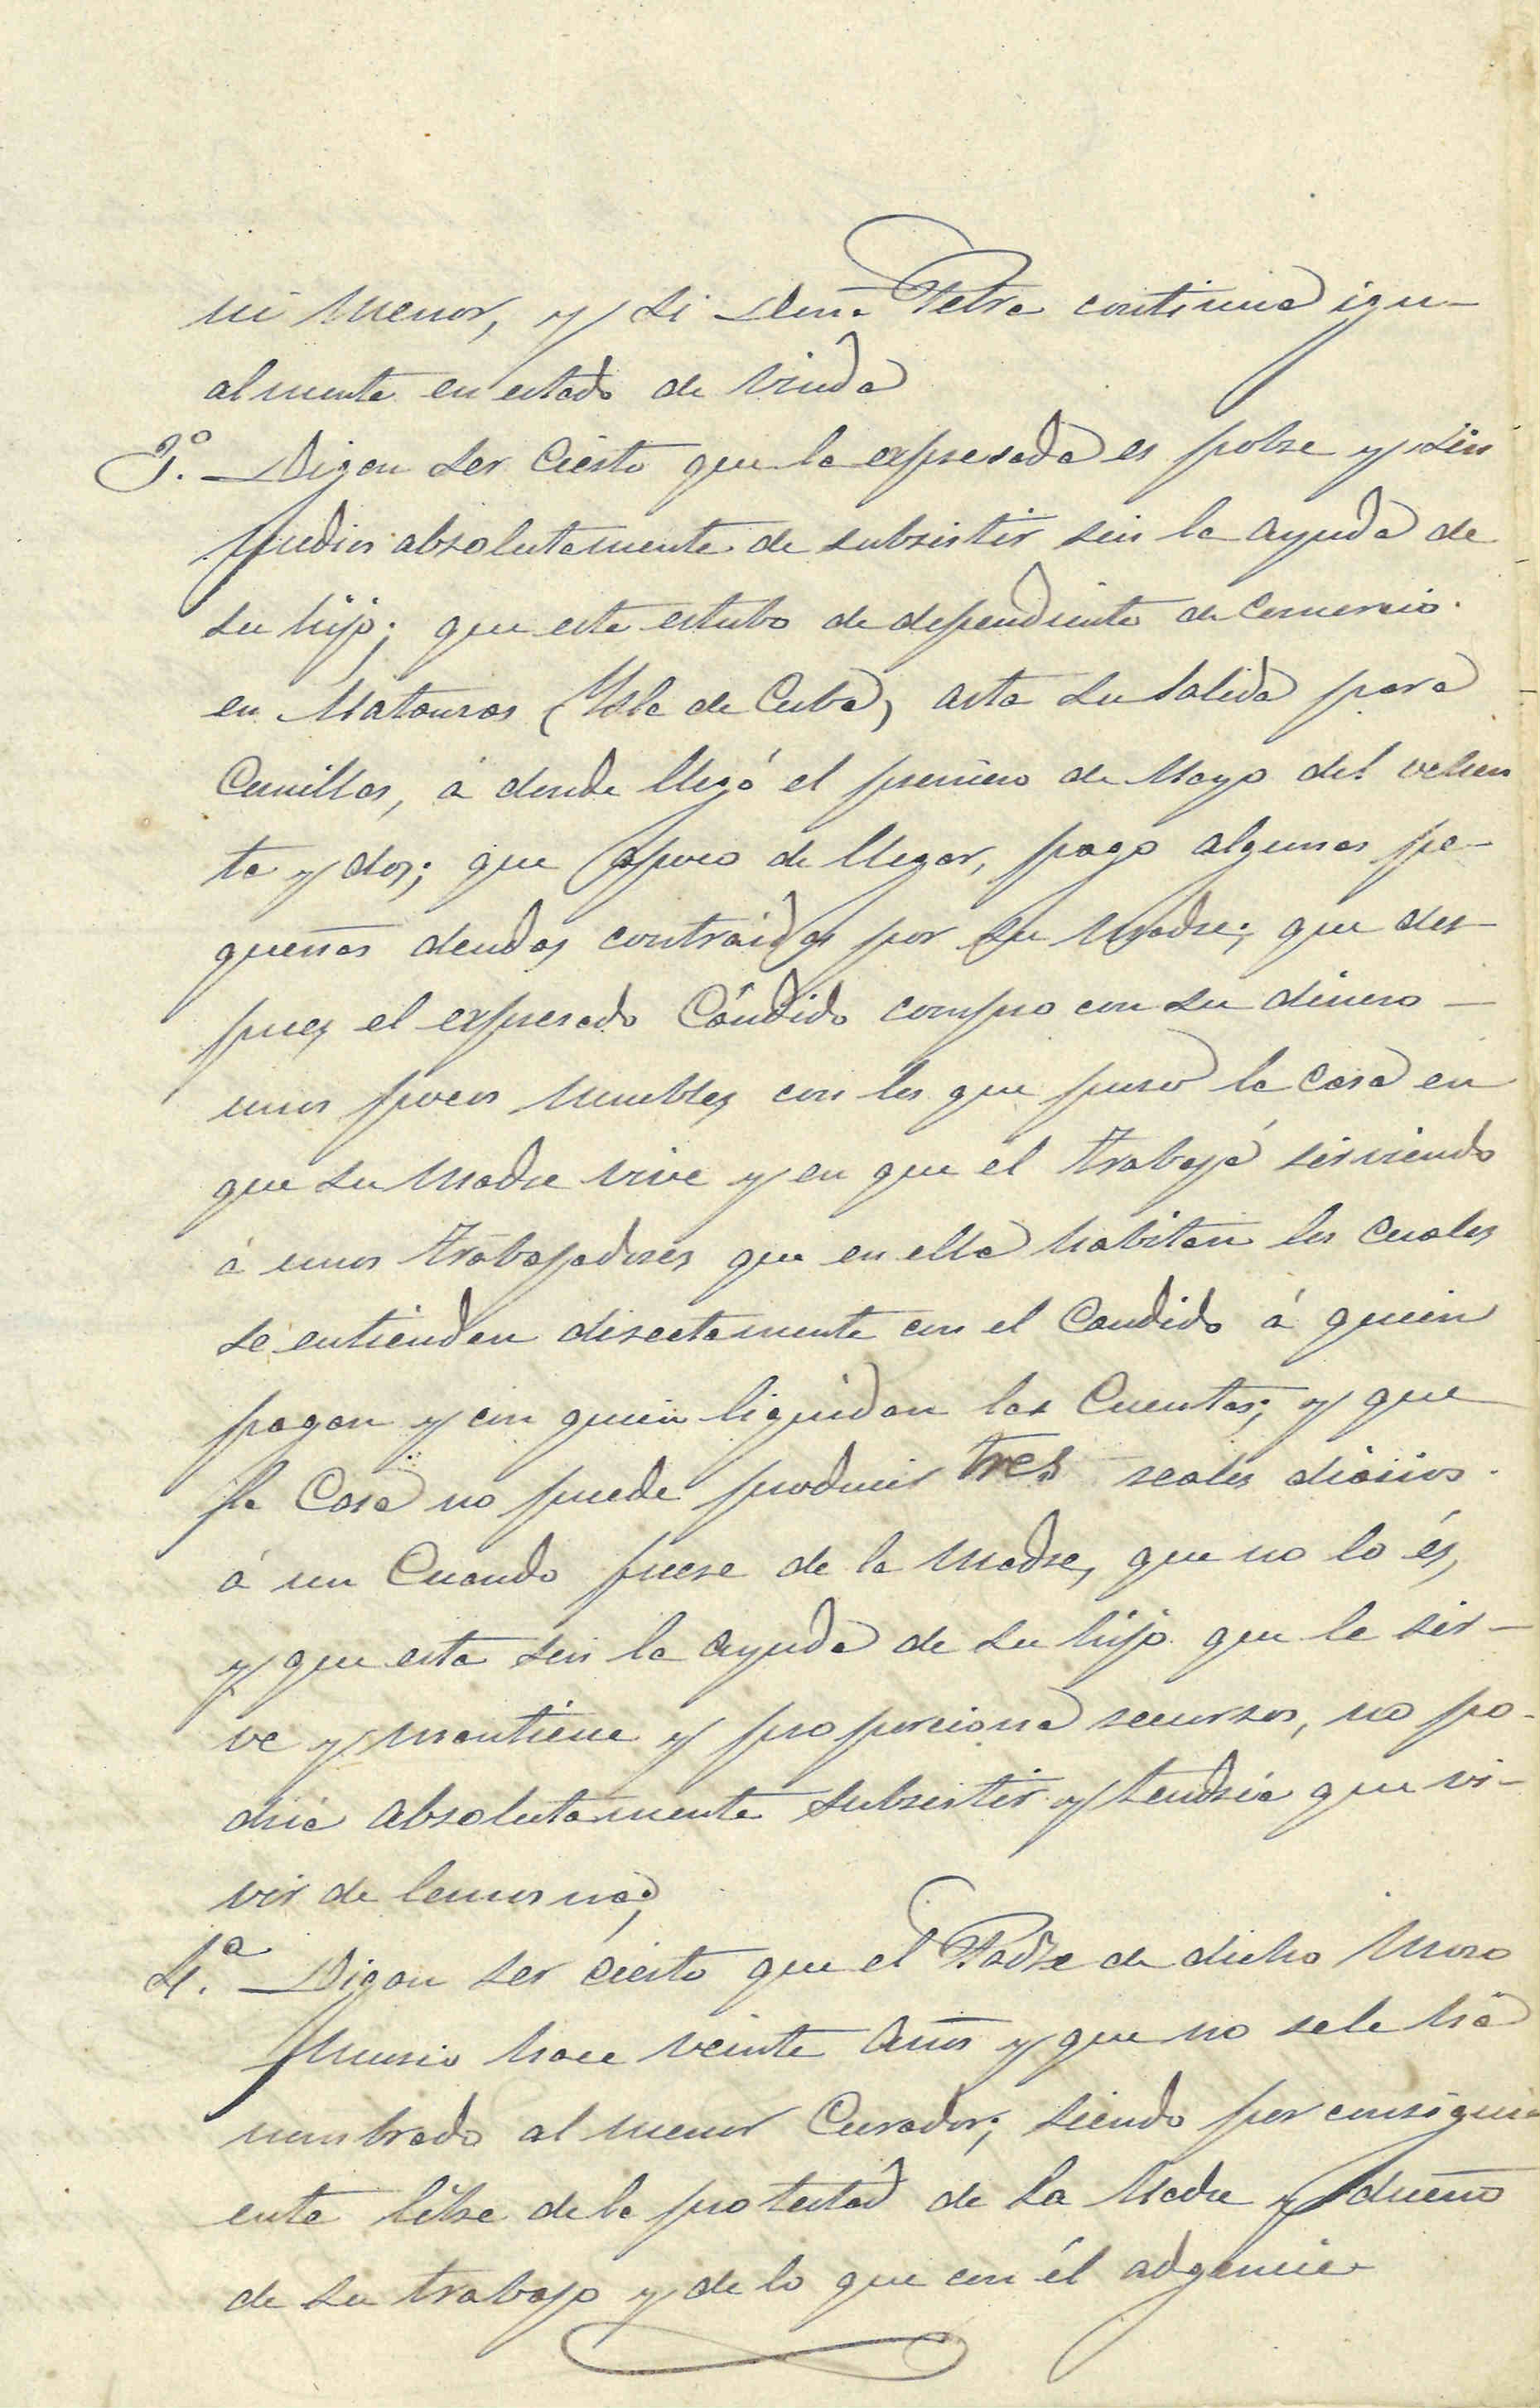 ni menor, y si Doña Petra continua igu-
almente en estado de viuda
3º. Digan ser cierto que la expresada es pobre y sin
medios absolutamente de subsistir sin la ayuda de
su hijo; que este estubo de dependiente de Comercio
en Matanzas (Ysla de Cuba) asta su salida para
Comillas, á donde llegó el primero de Mayo del ochen
ta y dos; que apoco de llegar, pago algunas pe-
queñas deudas contraidas por su Madre; que des-
pues el expresado Cándido compro con su dinero -
unos pocos muebles con los que puso la casa en
que su Madre vive y en que el trabaja sirviendo
á unos trabajadores que en ella habitan los cuales
se entienden directamente con el Candido á quien
pagan y con quien liquidan las Cuentas; y que
la Casa no puede producir tres reales diarios
á un Cuando fuese de la Madre, que no lo és,
y que esta sin la ayuda de su hijo que le sir-
ve y mantiene y proporciona recursos, no po-
dria absolutamente subsistir y tendria que vi-
vir de lemosna;
4.ª Digan ser cierto que el Padre de dicho Mozo
Murio hace veinte años y que no sele há
nombrado al menor Curador; siendo por consigui
ente libre dela protestad de la Madre y dueño
de su trabajo y de lo que con él adquiere